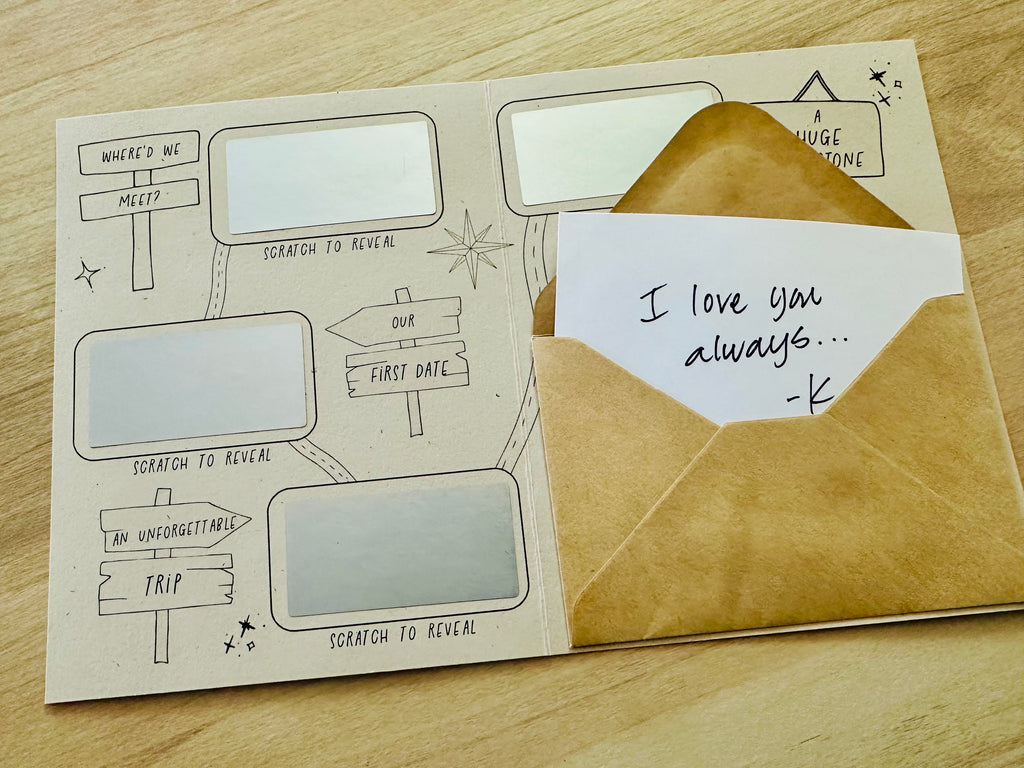 WHERE'D WE
MEET?
SCRATCH TO REVEAL
OUR
FIRST DATE
SCRATCH TO REVEAL
AN UNFORGETTABLE
TRIP
SCRATCH TO REVEAL
A
HUGE
I love you
always...
-K